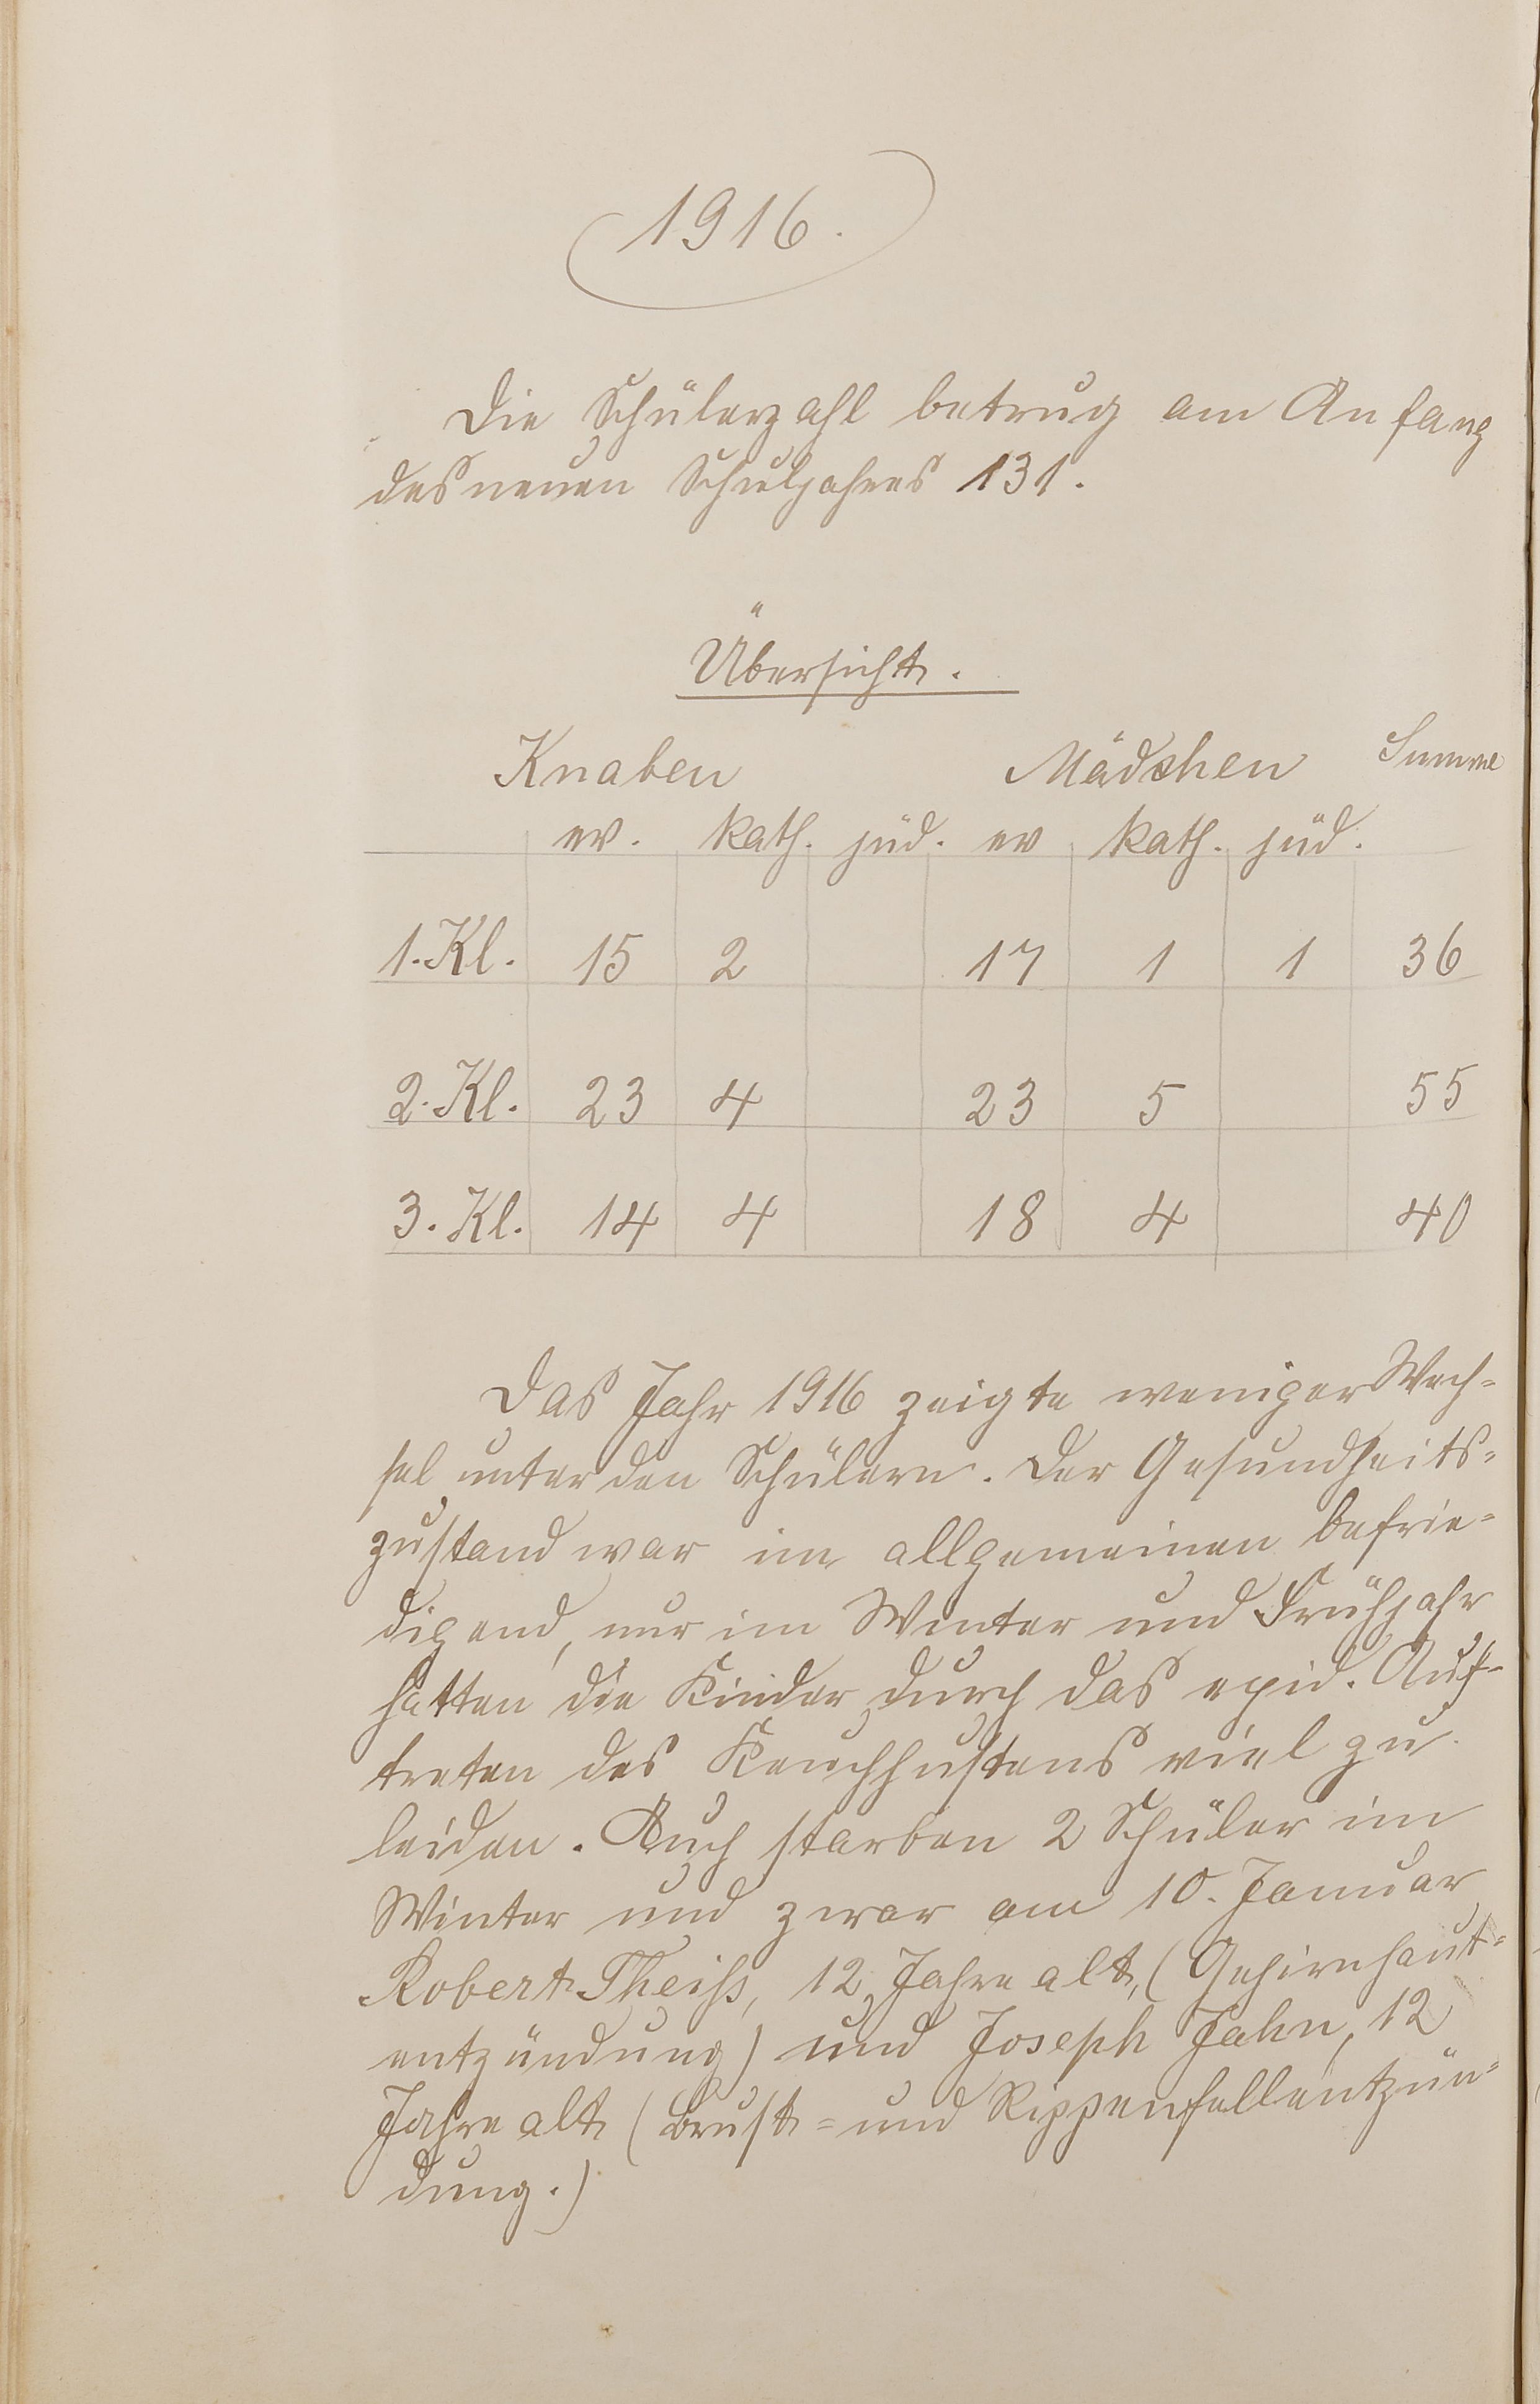 1916.
Die Schülerzahl betrug am Anfang
des neuen Schuljahres 131.
Übersicht.
Knaben Mädchen Summe
ev. kath. jüd. ev kath. jüd.
1. Kl. 15 2 17 1 1 36
2. Kl. 23 4 23 5 55
3. Kl. 14 4 18 4 40
Das Jahr 1916 zeigte weniger Wech=
sel unter den Schülern. Der Gesundheits=
zustand war im allgemeinen befrie=
digend, nur im Winter und Frühjahr
hatten die Kinder durch das epid. Auf=
treten des Keuchhustens viel zu
leiden. Auch starben 2 Schüler im
Winter und zwar am 10. Januar
Robert Theiß, 12 Jahre alt, (Gehirnhaut=
entzündung) und Joseph Jahn, 12
Jahre alt (Brust= und Rippenfellentzün=
dung.)